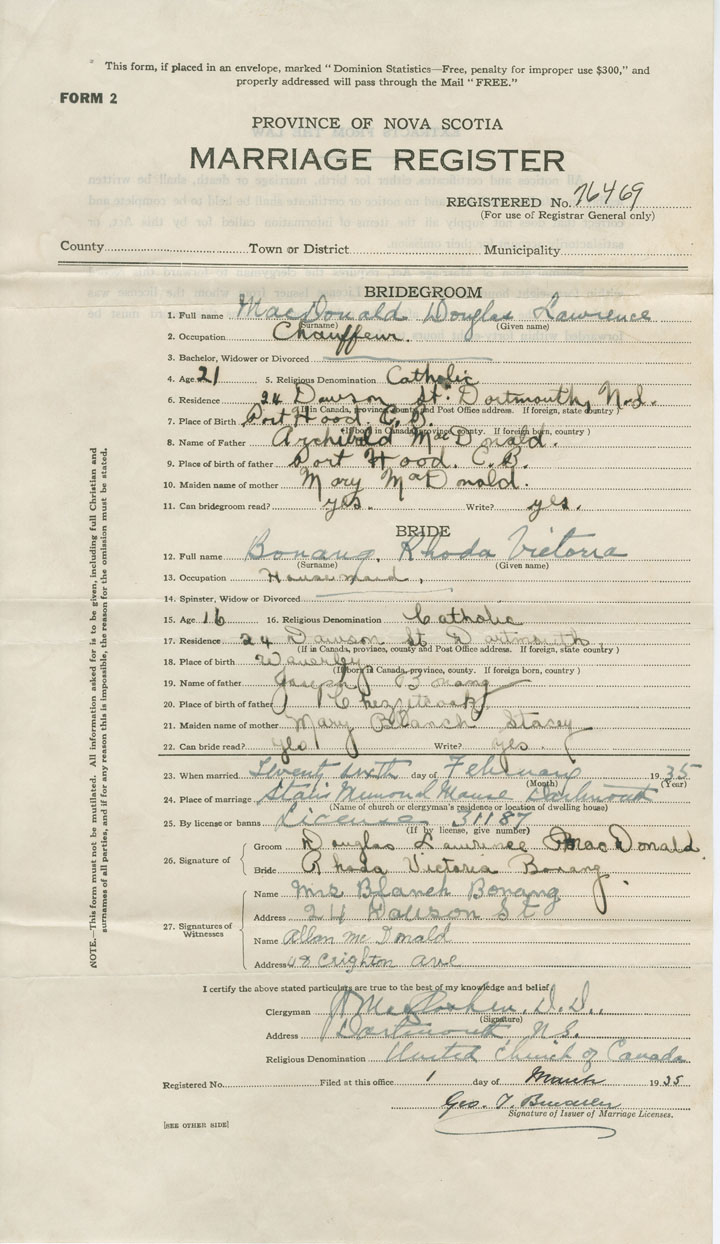 This form, if placed in an envelope, marked "Dominion Statistics—Free, penalty for improper use $300," and
properly addressed will pass through the Mail "FREE."
FORM 2
PROVINCE OF NOVA SCOTIA
MARRIAGE REGISTER
REGISTERED No. 76469
(For use of Registrar General only)
County Town or District Municipality
BRIDEGROOM
1. Full name MacDonald Douglas Lawrence
(Surname) (Given name)
2. Occupation Chauffeur.
3. Bachelor, Widower or Divorced
4. Age 21 5. Religious Denomination Catholic
6. Residence 24 Dawson St. Dartmouth, N.S.
(If in Canada, province, county and Post Office address. If foreign, state country)
7. Place of Birth Port Hood. C.B.
(If born in Canada, province, county. If foreign born, country)
8. Name of Father Archibald MacDonald.
9. Place of birth of father Port Hood. C.B.
10. Maiden name of mother Mary MacDonald.
11. Can bridegroom read? yes. Write? yes.
BRIDE
12. Full name Bonang, Rhoda Victoria
(Surname) (Given name)
13. Occupation Housemaid,
14. Spinster, Widow or Divorced
15. Age 16 16. Religious Denomination Catholic
17. Residence 24 Dawson St Dartmouth.
(If in Canada, province, county and Post Office address. If foreign, state country)
18. Place of birth Waverley
(If born in Canada, province, county. If foreign born, country)
19. Name of father Joseph Bonang
20. Place of birth of father Chezzetcook
21. Maiden name of mother Mary Blanch Stacey
22. Can bride read? yes Write? yes.
23. When married Twenty sixth day of February 1935
(Month) (Year)
24. Place of marriage Stairs Memorial Manse Dartmouth
(Name of church or clergyman's residence or location of dwelling house)
25. By license or banns License 31187
(If by license, give number)
26. Signature of
Groom Douglas Lawrence MacDonald.
Bride Rhoda Victoria Bonang.
27. Signatures of Witnesses
Name Mrs Blanch Bonang
Address 24 Dawson St
Name Allan McDonald
Address 48 Crighton ave
I certify the above stated particulars are true to the best of my knowledge and belief
Clergyman D.D.,
(Signature)
Address Dartmouth, N.S.
Religious Denomination United Church of Canada
Registered No. Filed at this office 1 day of March 1935
Geo. T.
Signature of Issuer of Marriage Licenses.
[SEE OTHER SIDE]
NOTE.—This form must not be mutilated. All information asked for is to be given, including full Christian and
surnames of all parties, and if for any reason this is impossible, the reason for the omission must be stated.